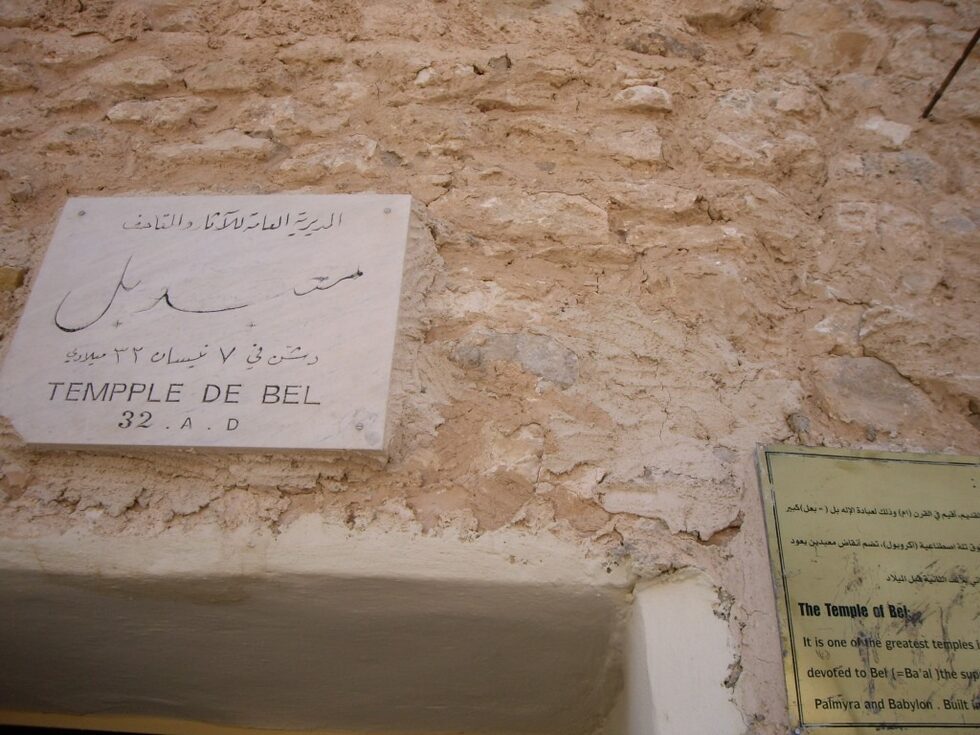 المديرية العامة للآثار والمتاحف
معبد بل
دشن في ٧ نيسان ٣٢ ميلادي
TEMPPLE DE BEL
32 . A . D
القديم، أقيم في القرن (١م) وذلك لعبادة الإله بل (= بعل) كبير
فوق تلة اصطناعية (أكروبول)، تضم أنقاض معبدين يعود
الثانية قبل الميلاد
The Temple of Bel:
It is one of the greatest temples
devoted to Bel (=Ba'al )the
Palmyra and Babylon . Built